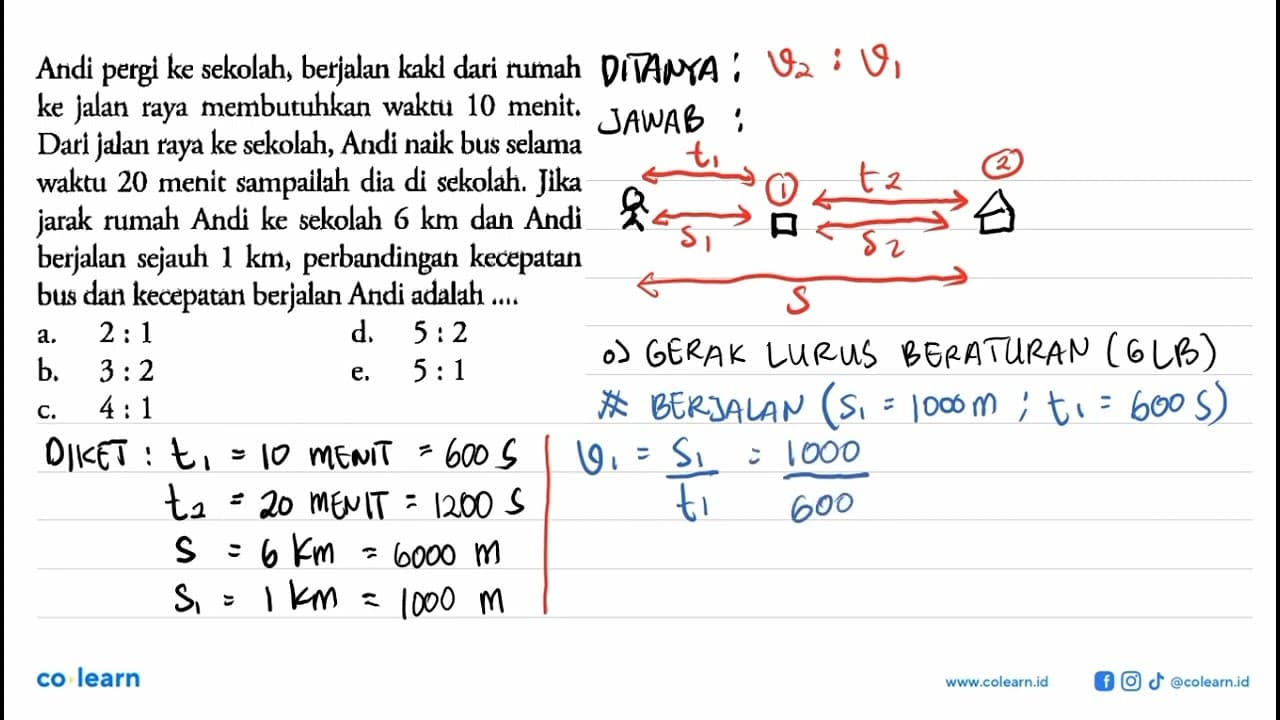 Andi pergi ke sekolah, berjalan kaki dari rumah
ke jalan raya membutuhkan waktu 10 menit.
Dari jalan raya ke sekolah, Andi naik bus selama
waktu 20 menit sampailah dia di sekolah. Jika
jarak rumah Andi ke sekolah 6 km dan Andi
berjalan sejauh 1 km, perbandingan kecepatan
bus dan kecepatan berjalan Andi adalah ....
a. 2 : 1 d. 5 : 2
b. 3 : 2 e. 5 : 1
c. 4 : 1
DIKET : t1 = 10 MENIT = 600 S
t2 = 20 MENIT = 1200 S
S = 6 Km = 6000 M
S1 = 1 KM = 1000 M
DITANYA : v2 : v1
JAWAB :
t1 1 t2 2
S1 S2
S
o) GERAK LURUS BERATURAN (GLB)
# BERJALAN (S1 = 1000 m ; t1 = 600 S)
v1 = S1/t1 = 1000/600
co learn
www.colearn.id @colearn.id